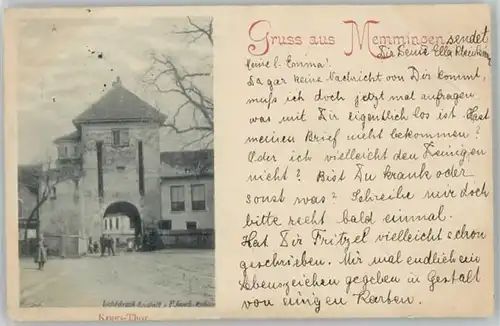 Gruss aus Memmingen sendet
Dir Deine Ella
Meine l. Emma!
Da gar keine Nachricht von Dir kommt,
muß ich doch jetzt mal anfragen,
was mit Dir eigentlich los ist. Hast
meinen Brief nicht bekommen?
Oder ich vielleicht den Deinigen
nicht? Bist Du krank oder
sonst was? Schreibe nur doch
bitte recht bald einmal.
Hat Dir Fritzel vielleicht schon
geschrieben. Mir mal endlich ein
Lebenszeichen gegeben in Gestalt
von einigen Karten.
Lichtdruck
Kemps-Thor.